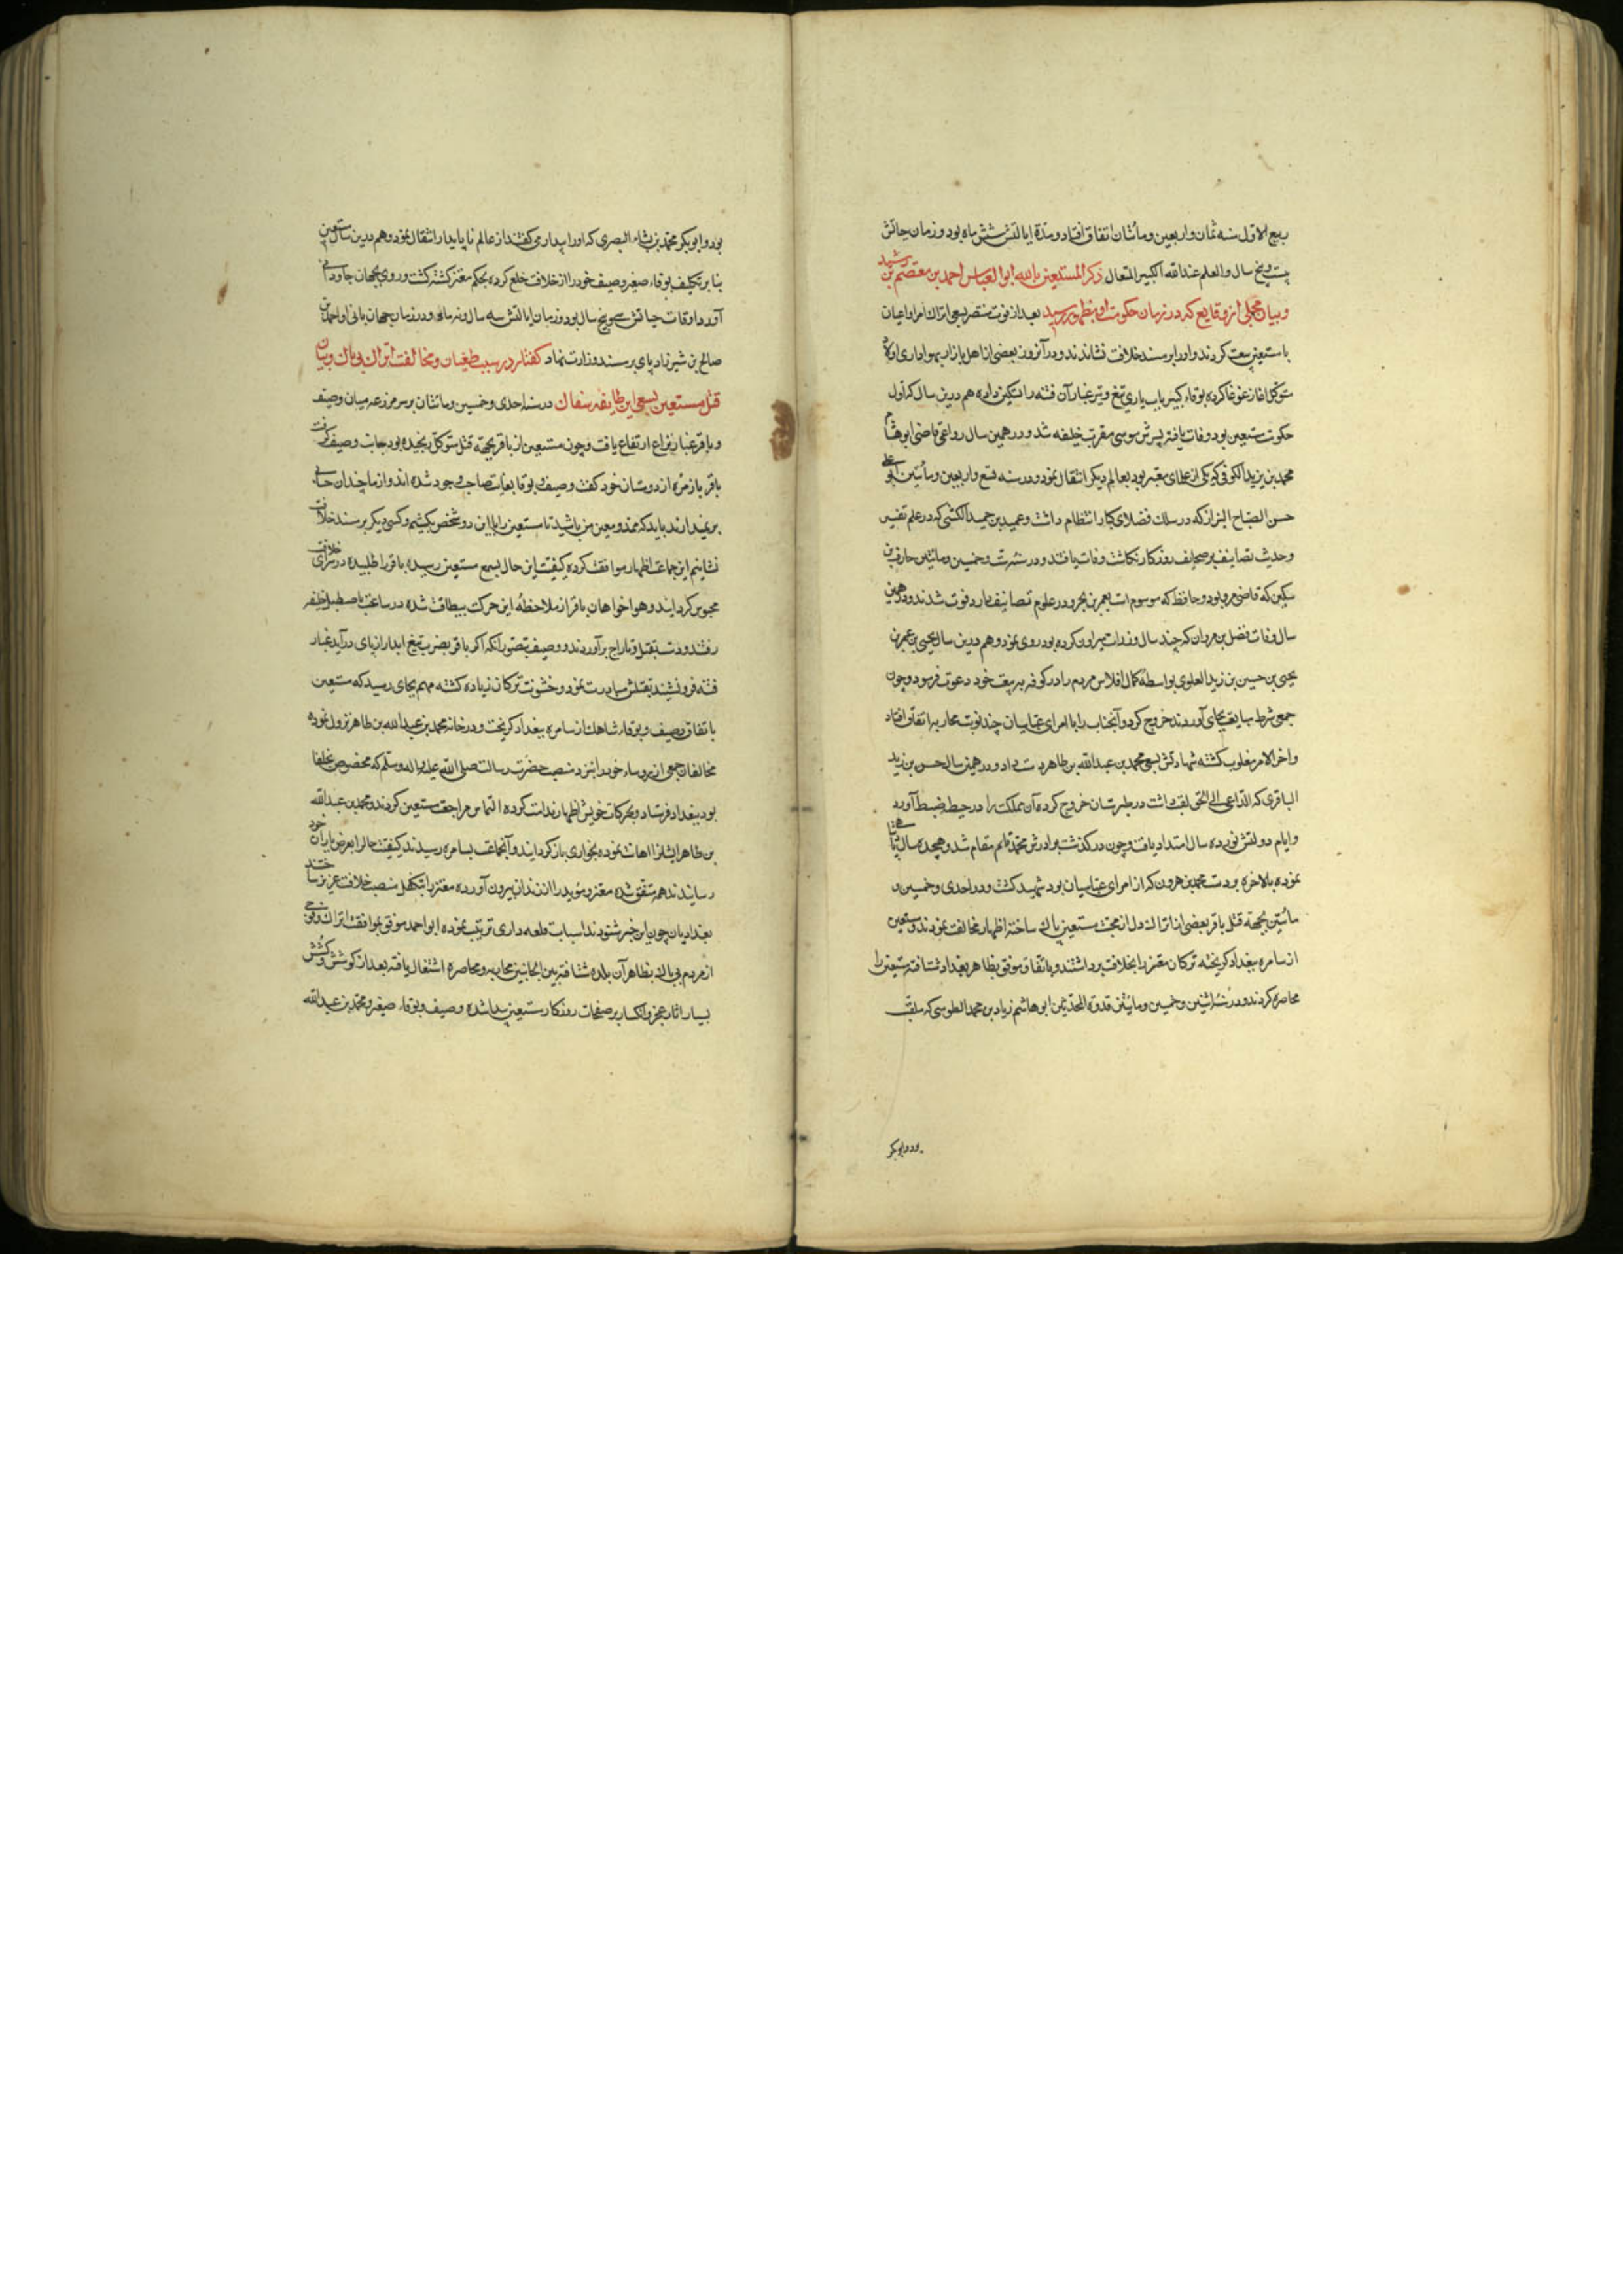 ربیع الاول سنه ثمان و اربعین و مائتان اتفاق افتاد و مدة ایالتش شش ماه بود و زمان حیاتش
بیست و پنج سال و العلم عند الله الکبیر المتعال ذکر المستعین بالله ابو العباس احمد بن معتصم بن رشید
و بیان مجملی از وقایع که در زمان حکومت او بظهور رسید بعد از فوت منتصر بسعی اتراک امرا و اعیان
با مستعین بیعت کردند و او را بر مسند خلافت نشاندند و در آنروز بعضی از اهل بازار بهواداری اولاد
متوکل اغاز غوغا کرده بوقاء کبیر بآب یاری تیغ و تیر غبار آن فتنه را تسکین داد و هم درین سال که اول
حکومت مستعین بود وفات یافته پسرش موسی مقرب خلیفه شد و در همین سال رواعی قاضی ابو هشام
محمد بن یزید الکوفی که یکی از علمای معتبر بود بعالم دیکر انتقال نمود و در سنه تسع و اربعین و مأتین ابو علی
حسن الصباح البزاز که در سلک فضلای کبار انتظام داشت و عمید بن حمید الکشی که در علم تفسیر
و حدیث تصانیف بر صحایف روزکار نکاشت وفات یافتند و در سنه ست و خمسین و مائتین حارث بن
سکین که قاضی مرو بود و حافظ که موسوم است بعمر بن بحر و در علوم تصانیف دارد فوت شدند و در همین
سال وفات فضل بن مروان که چند سال وزارت هرون کرده بود روی نمود و هم درین سال یحیی بن عمر بن
یحیی بن حسین بن زید العلوی بواسطه کمال افلاس مردم را در کوفه به بیعت خود دعوت فرمود و چون
جمعی شرط مبایعت بجای آوردند خروج کرد و آنجناب را با امرای عباسیان چند نوبت محاربه اتفاق افتاد
و اخر الامر مغلوب کشته شهادتش بسعی محمد بن عبد الله بن طاهر دست داد و در همین سال حسن بن زید
الباقری که الداعی الی الحق لقب داشت در طبرستان خروج کرده آن مملکت را در حیطه ضبط آورد
و ایام دولتش نوزده سال امتداد یافت و چون در کذشت برادرش محمد قایم مقام شد و هجده سال پادشاهی
نموده بالاخره بر دست محمد بن هرون که از امرای عباسیان بود شهید کشت و در احدی و خمسین و
مأتین بجهة قتل باقر بعضی از اتراک دل از محبت مستعین پاک ساخته اظهار مخالفت نمودند و مستعین
از سامره ببغداد کریخته ترکان معتز را بخلافت برداشتند و باتفاق موفق بظاهر بغداد شتافته مستعین را
محاصره کردند و در سنه اثنین و خمسین و مائتین قدوة المحدثین ابو هاشم زیاد بن محمد الطوسی که ملقب
بود و ابوبکر
بود و ابو بکر محمد بن بشاء البصری که او را بندار می کفتند از عالم ناپایدار انتقال نمود و هم درین سال مستعین
بنا بر تکلیف بوقاء صغیر و وصیف خود را از خلافت خلع کرده بحکم معتز کشته کشت و روی بجهان جاودانی
آورد اوقات حیاتش سی و پنج سال بود و زمان ایالتش سه سال و نه ماه و در زمان جهان بانی او احمد بن
صالح بن شیرزاد پای بر مسند وزارت نهاد کفتار در سبب طغیان و مخالفت اتراک بی باک و بیان
قتل مستعین بسعی این طایفه سفاک در سنه احدی و خمسین و مائتان بر سر مزرعه میان وصیف
و باقر غبار نزاع ارتفاع یافت و چون مستعین از باقر بجهة قتل متوکل رنجیده بود جانب وصیف کرفت
باقر با زمره از دوستان خود کفت وصیف و بوقا بغایت صاحب وجود شده اند و از ما چندان حسابی
برنمیدارند باید که ممد و معین من باشید تا مستعین را با این دو شخص بکشیم و کسی دیکر بر مسند خلافت
نشانیم این جماعت اظهار موافقت کرده کیفیت این حال بسمع مستعین رسیده باقر را طلبیده در سرای خلافت
محبوس کردانید و هواخواهان باقر از ملاحظه این حرکت بیطاقت شده در ساعت باصطبل خلیفه
رفتند و دست بقتل و تاراج برآوردند و وصیف بتصور آنکه اکر باقر بضرب تیغ ابدار از پای درآید غبار
فتنه فرو نشیند بقتلش مبادرت نمود و خشونت ترکان زیاده کشته مهم بجای رسید که مستعین
باتفاق وصیف و بوقاء شاهک از سامره ببغداد کریخت و در خانه محمد بن عبد الله بن طاهر نزول نموده
مخالفان جمعی از روساء خود را بنزد منصب حضرت رسالت صلی الله علیه و اله و سلم که مخصوص بخلفا
بود ببغداد فرستاد و بحرکات خویش اظهار ندامت کرده التماس مراجعت مستعین کردند و محمد بن عبد الله
بن طاهر ایشانرا اهانت نموده بخواری باز کردانید و آنجماعت بسامره رسیدند کیفیت حال را بعرض یاران خود
رسانیدند همه متفق شده معتز و موید را از زندان بیرون آورده معتز را بتکفل منصب خلافت عزیز ساختند
بغدادیان چون این خبر شنودند اسباب قلعه داری ترتیب نموده ابو احمد موفق بموافقت اتراک و فوجی
از مردم بی باک بظاهر آن بلده شتافته بین الجانبین بمحاربه و محاصره اشتغال یافته بعد از کوشش و کشش
بسیار اثار عجز و انکسار بر صفحات روزکار مستعین پیدا شده وصیف و بوقاء صغیر و محمد بن عبد الله